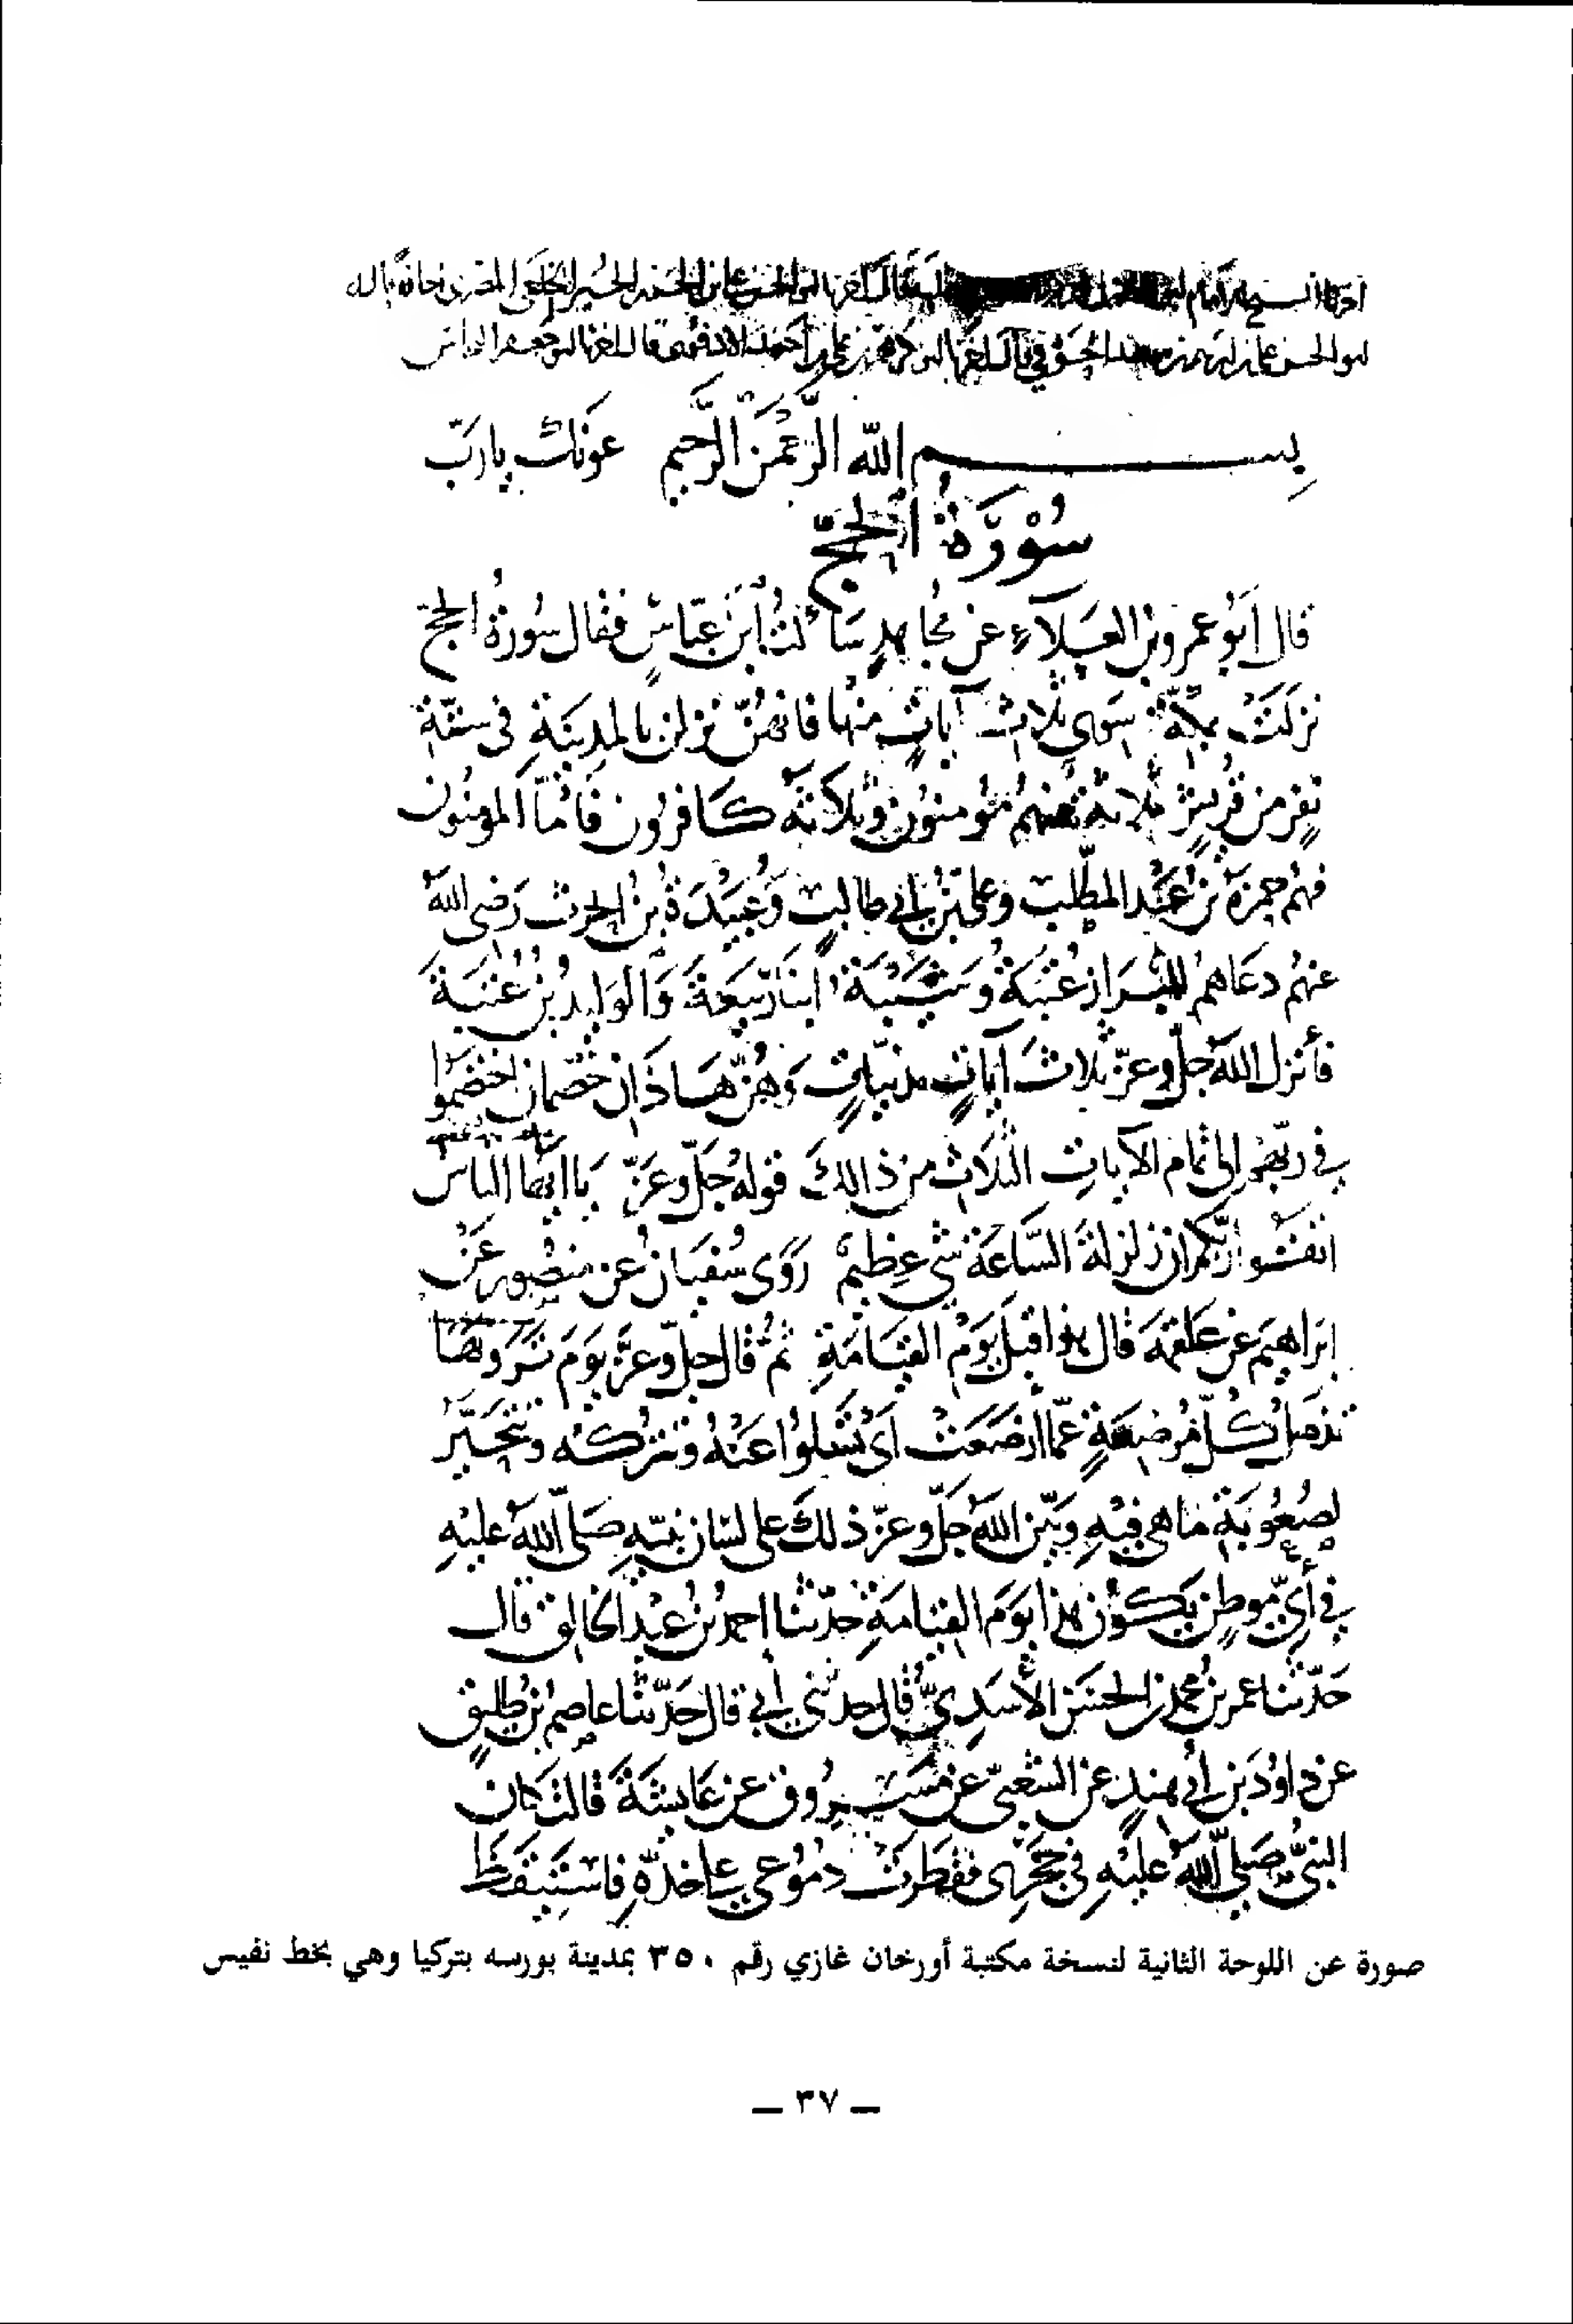 ابو الحسن علي بن ابرهيم بن سعيد الحوفي قال اخبرنا ابو بكر محمد بن علي بن احمد الادفوي قال اخبرنا ابو جعفر النحاس
بِسم الله الرَّحمن الرَّحيم عونك يا ربّ
سُوْرَةُ الحجّ
قال أبو عمرو بن العلاء عن مجاهد سَألتُ ابنَ عبّاسٍ فقال سُورةُ الحج
نزلَتْ بمكّة سوى ثلاث آياتٍ منها فانهنّ نزلن بالمدينَةِ في ستّةِ
نفرٍ من قريشٍ ثلاثة منهم مؤمنون وثلاثة كافرون فأمّا المؤمنون
فهم حمزة بن عبد المطّلب وعلي بن أبي طالبٍ وعُبَيْدَة بن الحرث رَضى الله
عنهم دعاهم للبراز عُتبَة وشيبَة ابنا ربيعَة وَالوليد بن عُتبَةَ
فأنزل الله جلّ وعزّ ثلاثَ آياتٍ مدنيّاتٍ وَهُنّ هَاذَان خَصمان اختصَموا
في ربّهم إلى تمام الآياتِ الثّلاث من ذالكَ قولهُ جَلّ وعَزّ يا ايها الناس
اتقوا ربّكم ان زلزلةَ السّاعَة شي عظيمٌ رَوَى سُفيَانُ عن منصور عَن
ابراهيم عن علقمة قال هذا قبل يَوْم القيَامَةِ ثمّ قال جلّ وعزّ يَومَ تَرَونهَا
تذهل كلّ مُرضعَةٍ عمّا أرضَعَتْ أي تسْلوا عَنْهُ وتتركه وتتحيّر
لصُعُوبَةِ ما هي فيْهِ وبيّن الله جَلّ وعزّ ذلك على لسَان نبيّه صَلّى اللهُ عليْهِ
في أيّ موطنٍ يكون هذا يَومَ القيَامَةِ حدّثنا احمد بنُ عبْد الخالق قال
حَدّثنا عمر بن محمد بن الحسَن الأسَدِيّ قال حدثني أبي قال حَدّثنا عاصم بن طليقٍ
عن داودَ بن أبي هندٍ عن الشّعبيّ عن مسْروق عن عَايشَةَ قالت كان
النبيّ صَلى اللهُ عليْهِ في حجْرِى فقطرتْ دُمُوعي على خدّهِ فاستَيقَظ
صورة عن اللوحة الثانية لنسخة مكتبة أورخان غازي رقم ٣٥٠ بمدينة بورسه بتركيا وهي بخط نفيس
— ٣٧ —